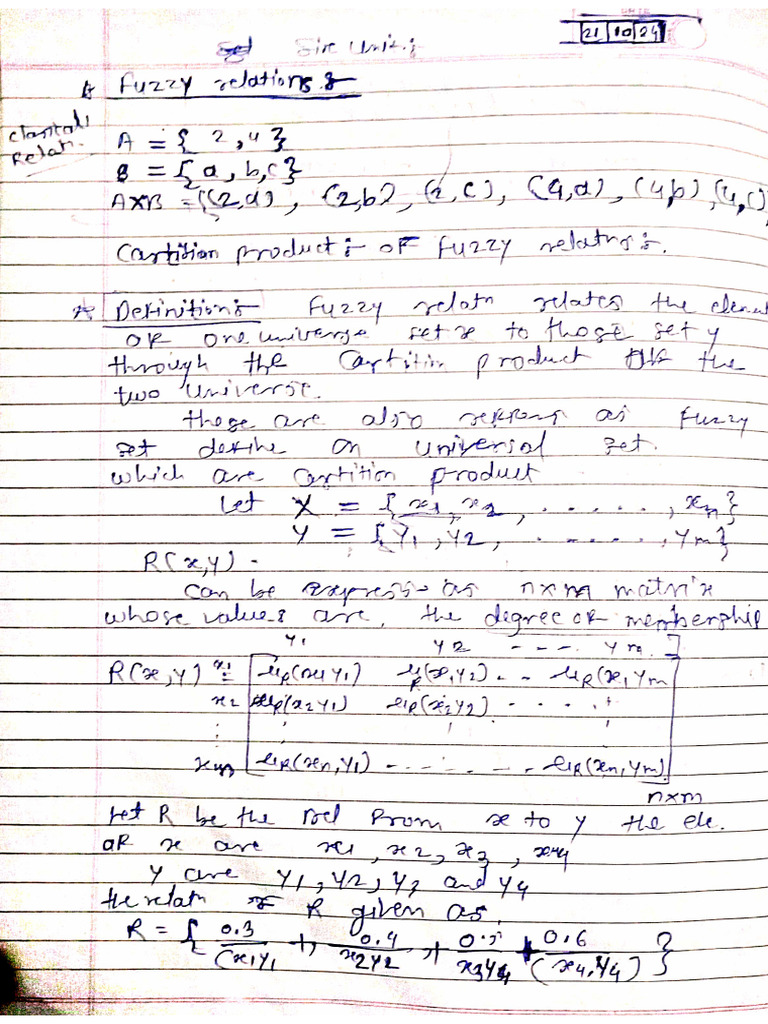 21 10 24
Unit :
Fuzzy relations :
Relatn.
A = { 2, 4 }
B = { a, b, c }
A×B = { (2,a), (2,b), (2,c), (4,a), (4,b), (4,c)
Cartition product :- of fuzzy relatns :.
Definition :- Fuzzy relatn relates the
of one universe set x to those set y
through the Cartitin product of the
two universe.
those are also as fuzzy
set define on universal set.
which are cartition product
let X = { x1, x2, ......, xn }
Y = { y1, y2, ......, ym }
R(x,y) -
can be express as n×m matrix
whose values are, the degree of membership
y1 y2 ---- ym
R(x,y) = x1 μR(x1 y1) μR(x1 y2) .. μR(x1 ym
x2 μR(x2 y1) μR(x2 y2) ....
xn μR(xn, y1) ------ μR(xn, ym)
n×m
let R be the Rel from x to y the ele.
of x are x1, x2, x3, x4
Y are y1, y2, y3 and y4
the relatn of R given as.
R = { 0.3/(x1 y1 + 0.4/x2 y2 + 0.5/x3 y4 + 0.6/(x4, y4) }